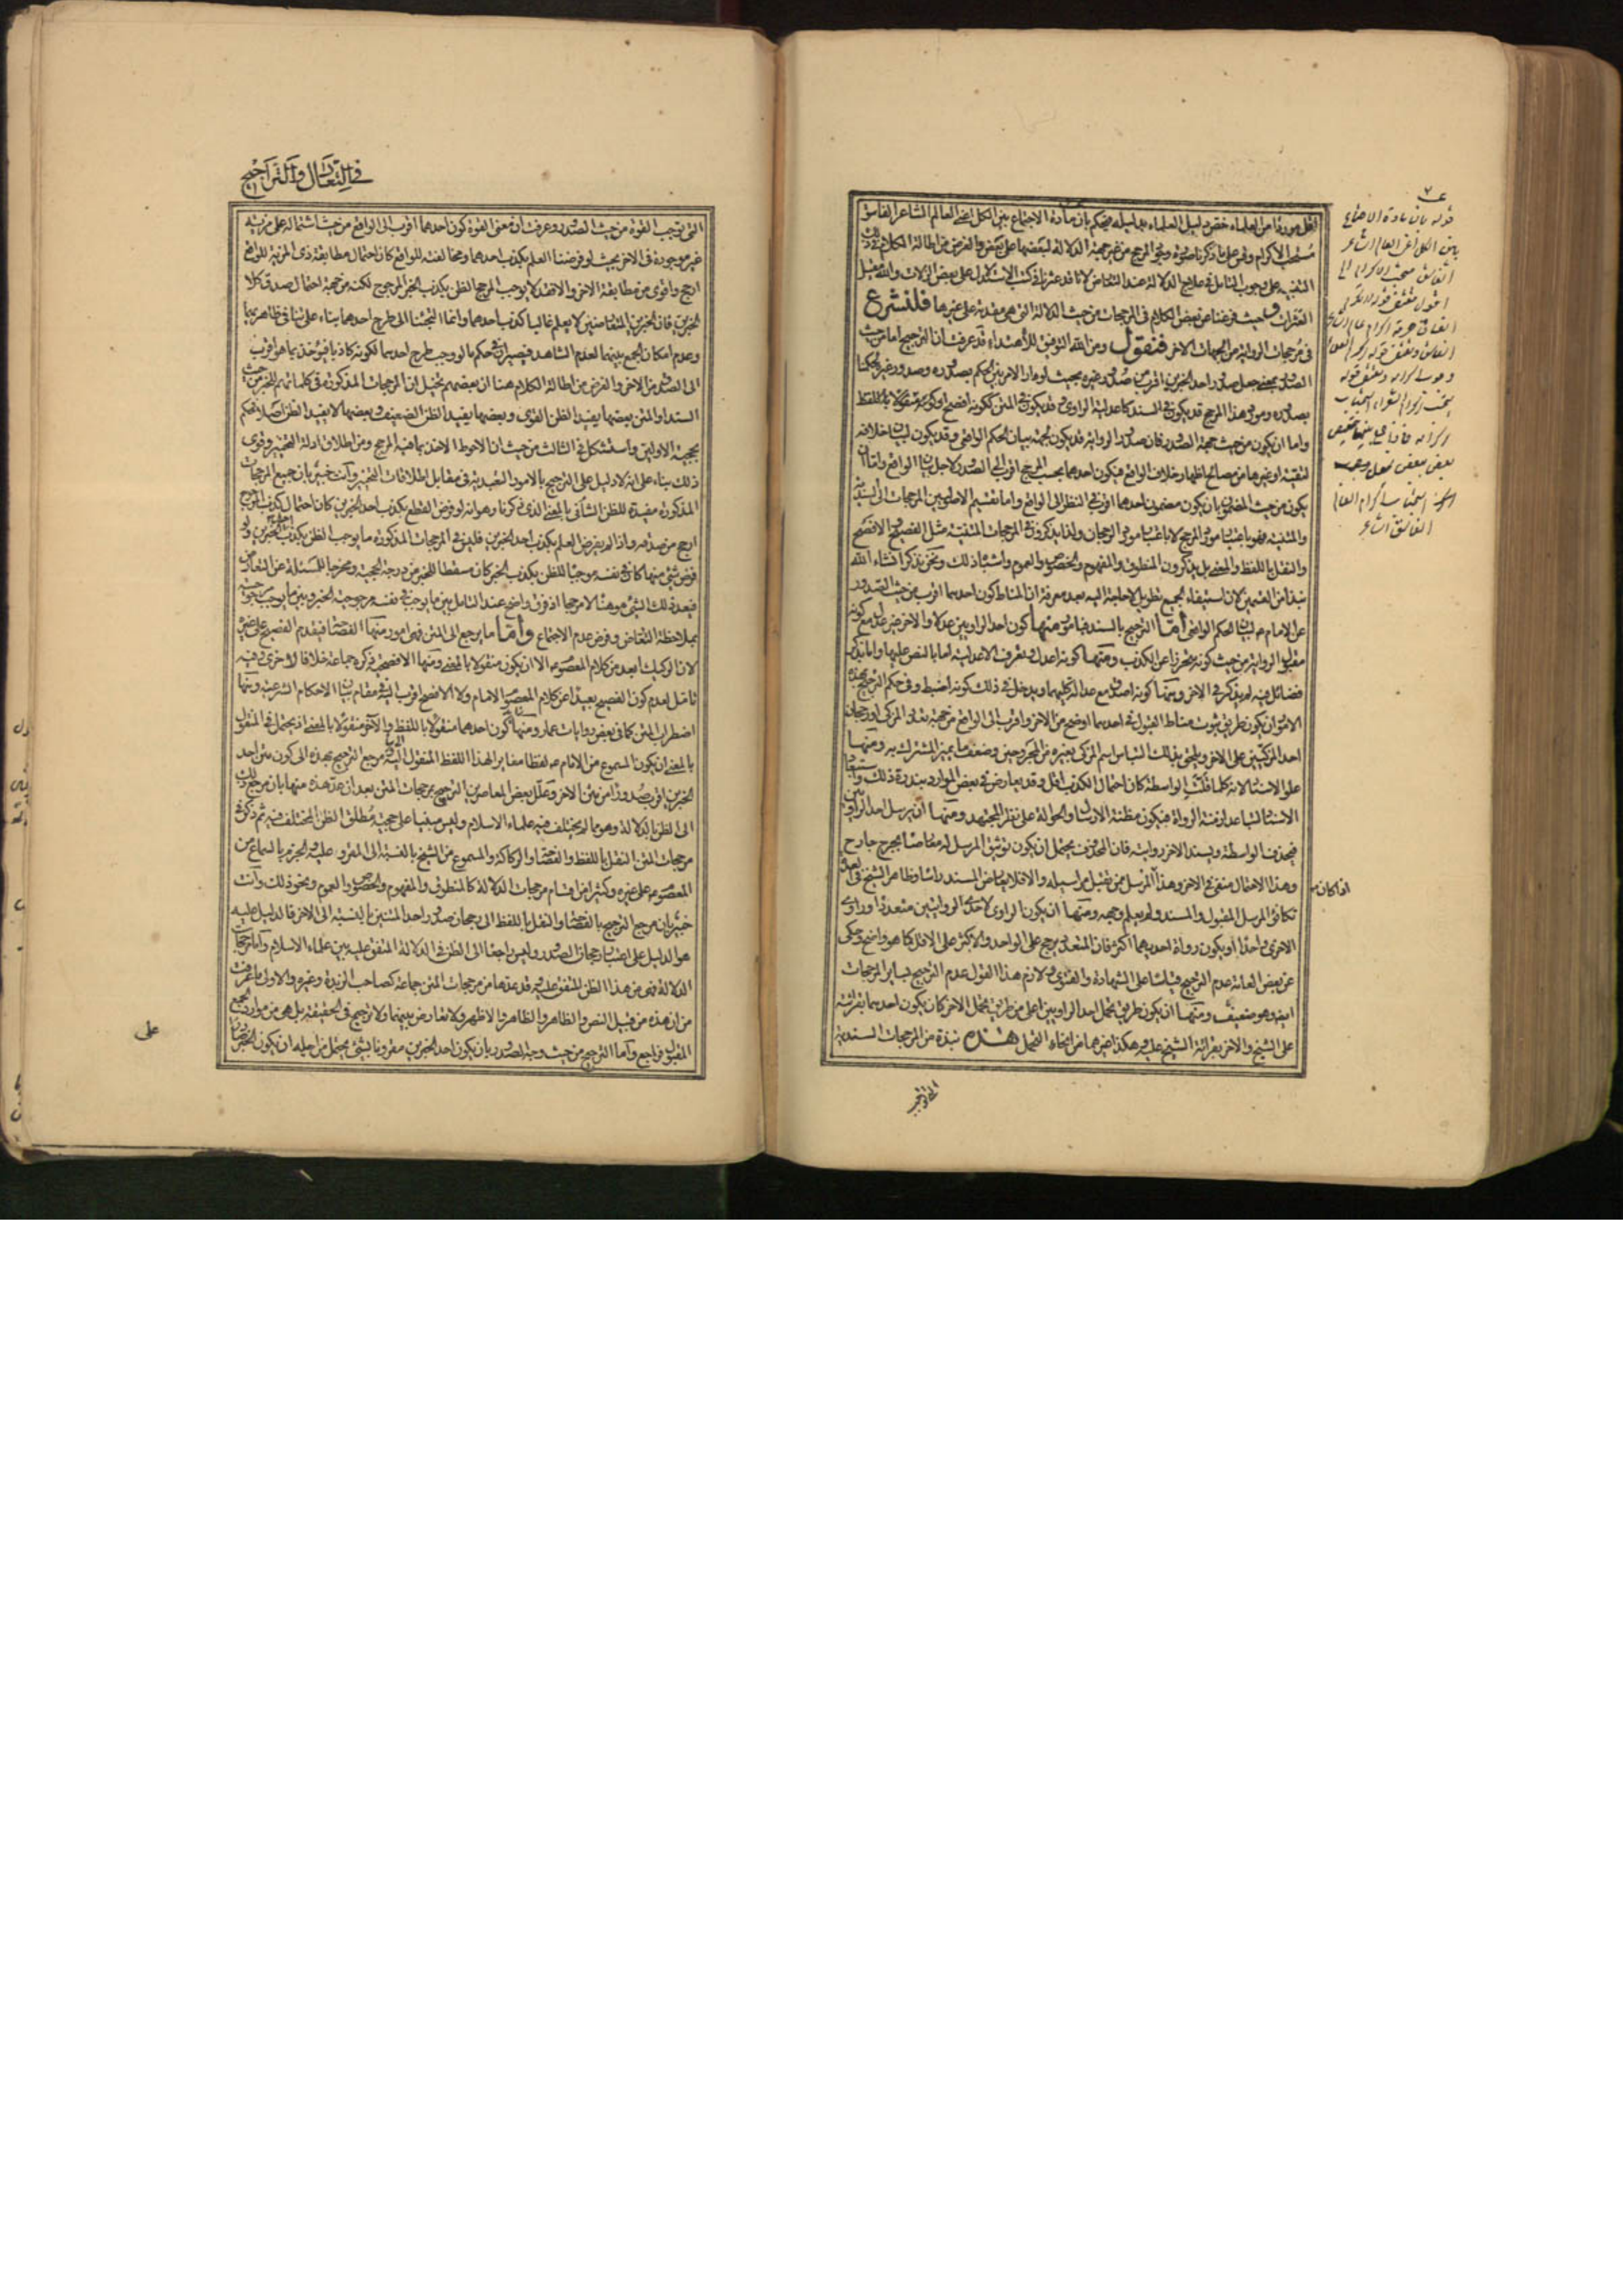 اقل موردا من العلماء خص دليل العلماء بدليله فيحكم بان مادة الاجتماع بين الكل اعنى العالم الشاعر الفاسق
مستحب الاكرام وقس على ما ذكرنا صورة وجود المرجح من غير جهة الدلالة لبعضها على بعض والغرض من اطالة الكلام فى ذلك
التنبيه على وجوب التامل فى علاج الدلالة عند التعارض لانا قد عثرنا فى كتب الاستدلال على بعض الزلات والله مقيل
العثرات وحيث فرغنا عن بعض الكلام فى المرجحات من حيث الدلالة التى هى مقدمة على غيرها فلنشرع
فى مرجحات الرواية من الجهات الاخر فنقول ومن الله التوفيق للاهتداء قد عرفت ان الترجيح اما من حيث
الصدور بمعنى جعل صدور احد الخبرين اقرب من صدور غيره بحيث لو دار الامر بين الحكم بصدوره وصدور غيره لحكمنا
بصدوره ومورد هذا المرجح قد يكون فى السند كاعدلية الراوى وقد يكون فى المتن ككونه افصح او كونه منقولا باللفظ
واما ان يكون من حيث جهة الصدور فان صدور الرواية قد يكون لجهة بيان الحكم الواقعى وقد يكون لبيان خلافه
لتقية او غيرها من مصالح اظهار خلاف الواقع فيكون احدهما بحسب المرجح اقرب الى الصدور لاجل بيان الواقع واما ان
يكون من حيث المضمون بان يكون مضمون احدهما اقرب فى النظر الى الواقع واما تقسيم الاصوليين المرجحات الى السندية
والمتنية فهو باعتبار مورد المرجح لا باعتبار مورد الرجحان ولذا يذكرون فى المرجحات المتنية مثل الفصيح والافصح
والنقل باللفظ والمعنى بل يذكرون المنطوق والمفهوم والخصوص والعموم واشباه ذلك ونحن نذكر انشاء الله
نبذا من القسمين لان استيفاء الجميع تطويل لا حاجة اليه بعد معرفة ان المناط كون احدهما اقرب من حيث الصدور
عن الامام ع لبيان الحكم الواقعى اما الترجيح بالسند فبامور منها كون احد الراويين عدلا والاخر غير عدل مع كونه
مقبول الرواية من حيث كونه متحرزا عن الكذب ومنها كونه اعدل وتعرف الاعدلية اما بالنص عليها واما بذكر
فضائل فيه لم يذكر فى الاخر ومنها كونه اصدق مع عدالة كليهما ويدخل فى ذلك كونه اضبط وفى حكم الترجيح بهذه
الامور ان يكون طريق ثبوت مناط القبول فى احدهما اوضح من الاخر واقرب الى الواقع من جهة تعدد المزكى او رجحان
احد المزكيين على الاخر ويلحق بذلك التباس اسم المزكى بغيره من المجروحين وضعف ما يميز المشترك به ومنها
علو الاسناد لانه كلما قلت الواسطة كان احتمال الكذب اقل وقد يعارض فى بعض الموارد بندرة ذلك واستبعاد
الاسناد لتباعد ازمنة الرواة فيكون مظنة الارسال والحوالة على نظر المجتهد ومنها ان يرسل احد الراويين
فيحذف الواسطة ويسند الاخر روايته فان المحذوف يحتمل ان يكون توثيق المرسل له معارضا بجرح جارح
وهذا الاحتمال منفى فى الاخر وهذا المرسل ممن تقبل مراسيله والا فلا يعارض المسند راسا وظاهر الشيخ فى العدة
اذا كان
تكافؤ المرسل المقبول والمسند ولم يعلم وجهه ومنها ان يكون الراوى لاحدى الروايتين متعددا وراوى
الاخرى واحدا او يكون رواة احديهما اكثر فان المتعدد يرجح على الواحد والاكثر على الاقل كما هو واضح وحكى
عن بعض العامة عدم الترجيح قياسا على الشهادة والفتوى ولازم هذا القول عدم الترجيح بساير المرجحات
ايضا وهو ضعيف ومنها ان يكون طريق تحمل احد الراويين اعلى من طريق تحمل الاخر كان يكون احدهما بقرائته
على الشيخ والاخر بقرائة الشيخ عليه وهكذا غيرهما من انحاء التحمل هذه نبذة من المرجحات السندية
التى توجب
قوله بان مادة الاجتماع
بين الكل اعنى العالم الشاعر
الفاسق مستحب الاكرام
فى التعادل والتراجيح
التى توجب القوة من حيث الصدور وعرفت ان معنى القوة كون احدهما اقرب الى الواقع من حيث اشتماله على مزية
غير موجودة فى الاخر بحيث لو فرضنا العلم بكذب احدهما ومخالفته للواقع كان احتمال مطابقة ذى المزية للواقع
ارجح واقوى من مطابقة الاخر والا فقد لا يوجب المرجح الظن بكذب الخبر المرجوح لكنه من جهة احتمال صدق كلا
الخبرين فان الخبرين المتعارضين لا يعلم غالبا كذب احدهما وانما التجئنا الى طرح احدهما بناء على تنافى ظاهريهما
وعدم امكان الجمع بينهما لعدم الشاهد فيصيران فى حكم ما لو وجب طرح احدهما لكونه كاذبا فيؤخذ بما هو اقرب
الى الصدق من الاخر والغرض من اطالة الكلام هنا ان بعضهم تخيل ان المرجحات المذكورة فى كلماتهم للخبر من حيث
السند او المتن بعضها يفيد الظن القوى وبعضها يفيد الظن الضعيف وبعضها لا يفيد الظن اصلا فحكم
بحجية الاولين واستشكل فى الثالث من حيث ان الاحوط الاخذ بما فيه المرجح ومن اطلاق ادلة التخيير وقوى
ذلك بناء على انه لا دليل على الترجيح بالامور التعبدية فى مقابل اطلاقات التخيير وانت خبير بان جميع المرجحات
المذكورة مفيدة للظن الشأنى بالمعنى الذى ذكرنا وهو انه لو فرض القطع بكذب احد الخبرين كان احتمال كذب المرجوح
ارجح من صدقه واذا لم يفرض العلم بكذب احد الخبرين فليس فى المرجحات المذكورة ما يوجب الظن بكذب احد الخبرين ولو
فرض شئ منها كان فى نفسه موجبا للظن بكذب الخبر كان مسقطا للخبر عن درجة الحجية ومخرجا للمسئلة عن التعارض
فيعد ذلك الشئ موهنا لا مرجحا اذ فرق واضح عند التامل بين ما يوجب فى نفسه مرجوحية الخبر وبين ما يوجب مرجوحيته
بملاحظة التعارض وفرض عدم الاجتماع واما ما يرجع الى المتن فهى امور منها الفصاحة فيقدم الفصيح على غيره
لان الركيك ابعد من كلام المعصوم الا ان يكون منقولا بالمعنى ومنها الافصحية ذكره جماعة خلافا لاخرى وفيه
تامل لعدم كون الفصيح بعيدا عن كلام المعصوم الامام ولا الافصح اقرب اليه فى مقام بيان الاحكام الشرعية ومنها
اضطراب المتن كما فى بعض روايات عمار ومنها كون احدهما منقولا باللفظ والاخر منقولا بالمعنى اذ يحتمل فى المنقول
بالمعنى ان يكون المسموع من الامام ع لفظا مغايرا لهذا اللفظ المنقول اليه ومرجع الترجيح بهذه الى كون متن احد
الخبرين اقرب صدورا من متن الاخر وعلل بعض المعاصرين الترجيح بمرجحات المتن بعد ان عد هذه منها بان مرجع ذلك
الى الظن بالدلالة وهو مما لم يختلف فيه علماء الاسلام وليس مبنيا على حجية مطلق الظن المختلف فيه ثم ذكر فى
مرجحات المتن النقل باللفظ والفصاحة والركاكة والمسموع من الشيخ بالنسبة الى المقروء عليه والجزم بالسماع من
المعصوم على غيره وكثيرا من اقسام مرجحات الدلالة كالمنطوق والمفهوم والخصوص والعموم ونحو ذلك وانت
خبير بان مرجع الترجيح بالفصاحة والنقل باللفظ الى رجحان صدور احد المتنين بالنسبة الى الاخر فالدليل عليه
هو الدليل على اعتبار رجحان الصدور وليس راجعا الى الظن فى الدلالة المتفق عليه بين علماء الاسلام واما مرجحات
الدلالة فهى من هذا الظن المتفق عليه وقد عدها من مرجحات المتن جماعة كصاحب الزبدة وغيره والاولى ما عرفت
من ان هذه من قبيل النص والظاهر والظاهر والاظهر ولا تعارض بينهما ولا ترجيح فى الحقيقة بل هى من موارد الجمع
المقبول فراجع واما الترجيح من حيث وجه الصدور بان يكون احد الخبرين مقرونا بشئ يحتمل من اجله ان يكون الخبر صادرا
على